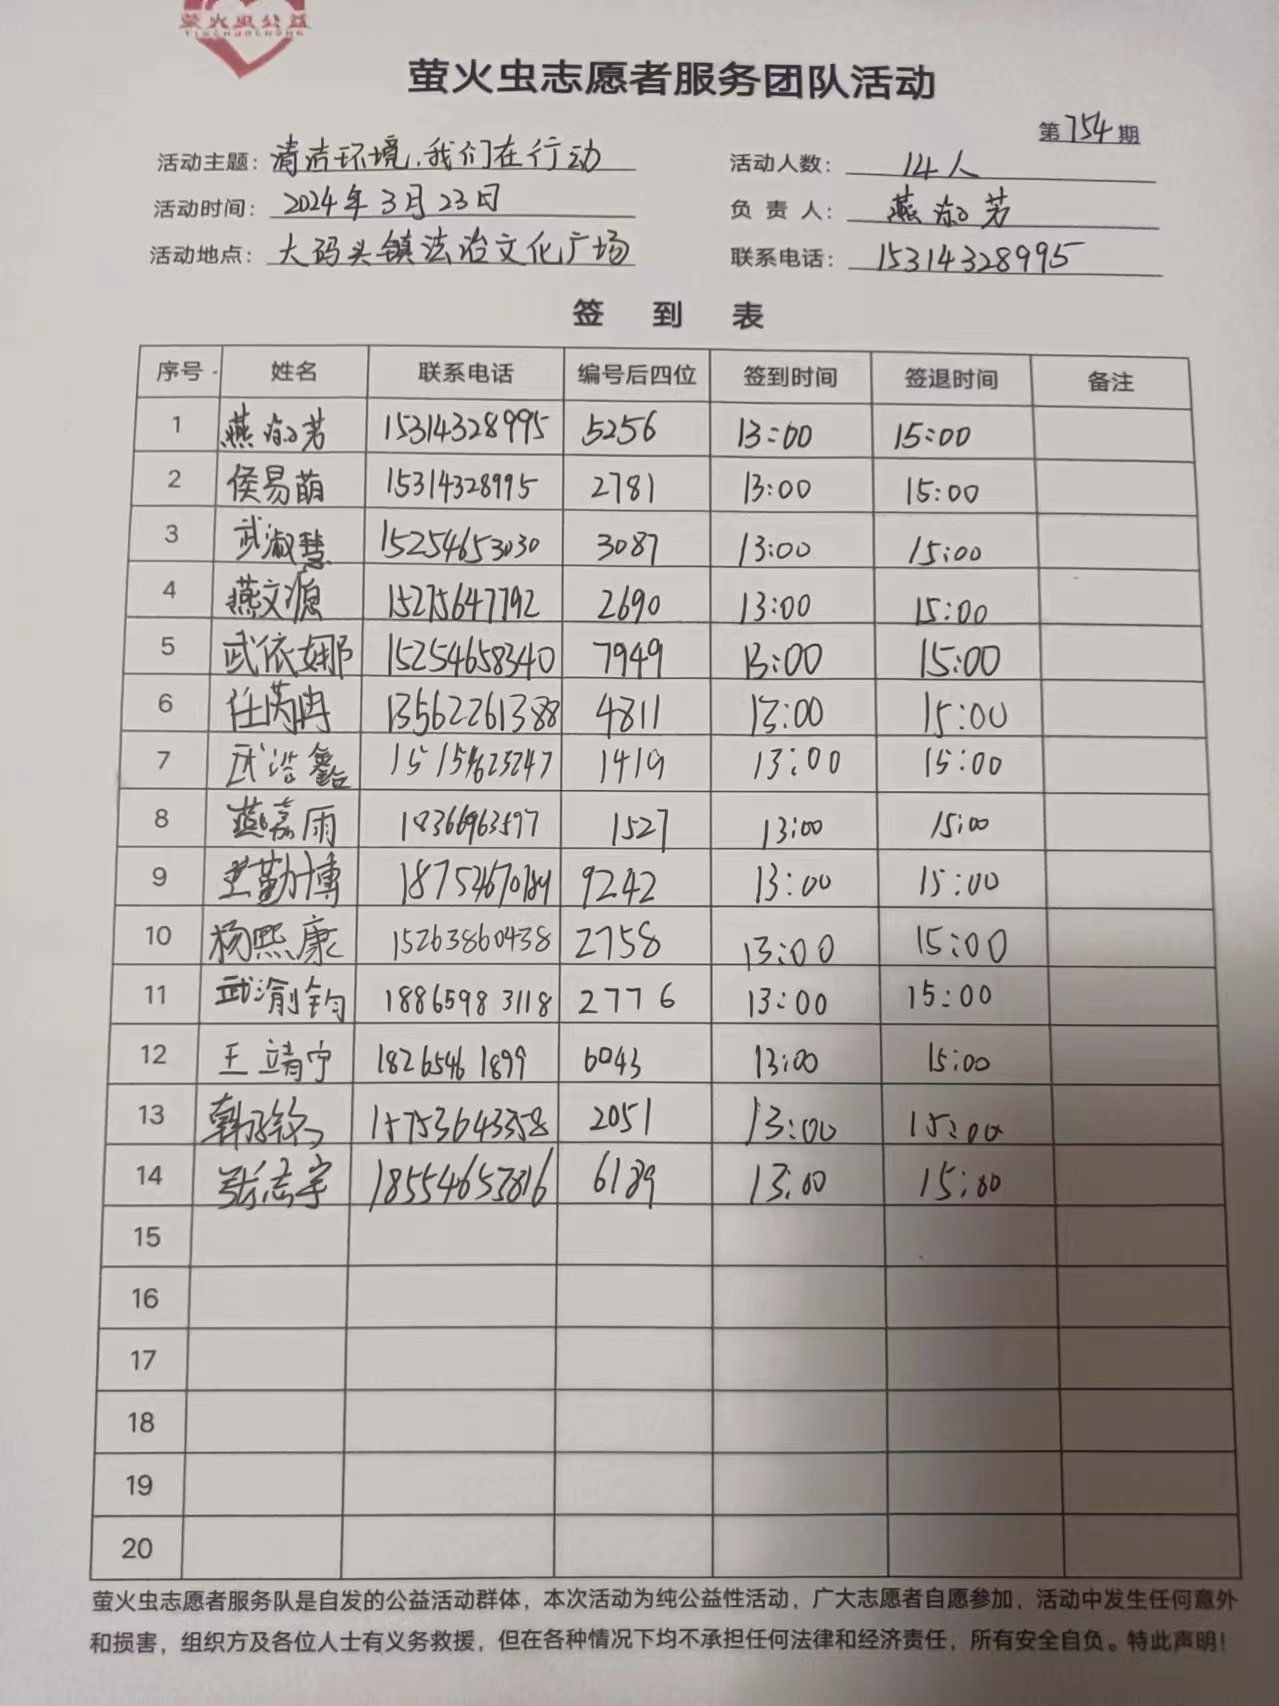 萤火虫公益
YINGHUOCHONG
萤火虫志愿者服务团队活动
第754期
活动主题：清洁环境，我们在行动 活动人数：14人
活动时间：2024年3月23日 负责人：燕 芳
活动地点：大码头镇法治文化广场 联系电话：15314328995
签 到 表
序号 姓名 联系电话 编号后四位 签到时间 签退时间 备注
1 燕 芳 15314328995 5256 13:00 15:00
2 侯易萌 15314328995 2781 13:00 15:00
3 武淑慧 15254653030 3087 13:00 15:00
4 燕文源 15275647792 2690 13:00 15:00
5 武依娜 15254658340 7949 13:00 15:00
6 任芮冉 13562261388 4811 13:00 15:00
7 武浩鑫 15154623247 1419 13:00 15:00
8 燕嘉雨 18366963597 1527 13:00 15:00
9 勤博 9242 13:00 15:00
10 杨熙康 15263860438 2758 13:00 15:00
11 武渝钧 18865983118 2776 13:00 15:00
12 王靖宁 18265461899 6043 13:00 15:00
13 韩 15753643358 2051 13:00 15:00
14 张志宇 18554653816 6189 13:00 15:00
15
16
17
18
19
20
萤火虫志愿者服务队是自发的公益活动群体，本次活动为纯公益性活动，广大志愿者自愿参加，活动中发生任何意外
和损害，组织方及各位人士有义务救援，但在各种情况下均不承担任何法律和经济责任，所有安全自负。特此声明！